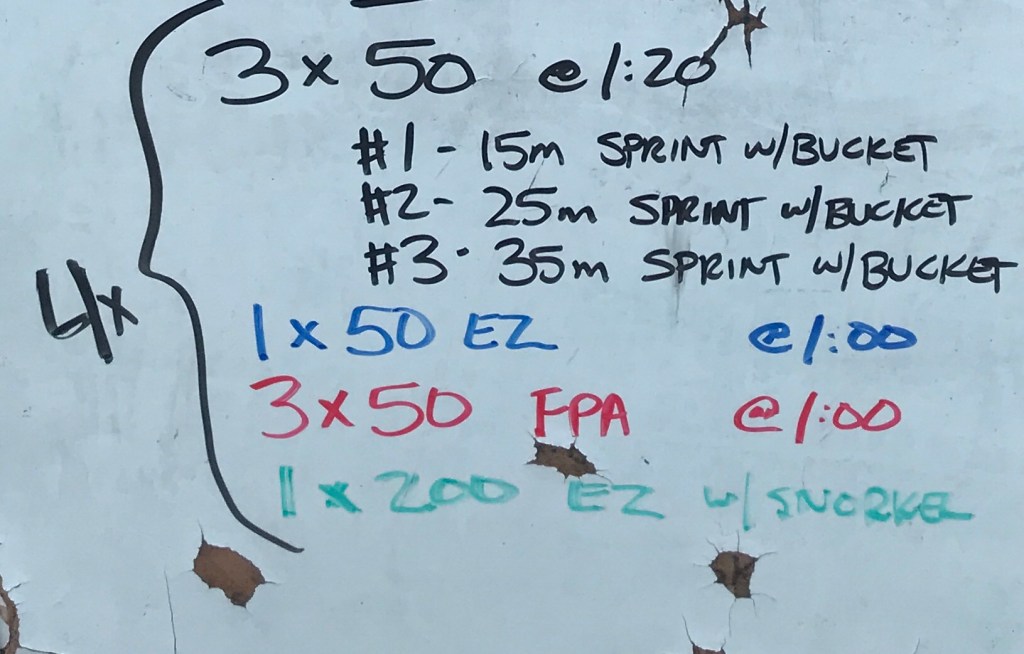 3 x 50 @ 1:20
#1 - 15m SPRINT w/BUCKET
#2 - 25m SPRINT w/BUCKET
#3 - 35m SPRINT w/BUCKET
4x
1 x 50 EZ @ 1:00
3 x 50 FPA @ 1:00
1 x 200 EZ w/ SNORKEL